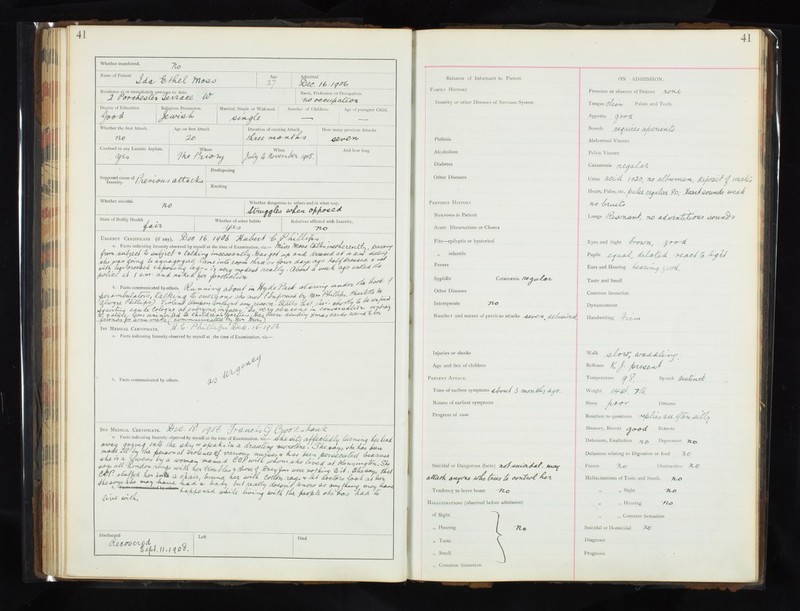 41
Whether transferred. no
Name of Patient Age Admitted
Ida Ethel Moss 27 Dec. 16 1906
Residence at or immediately previous to date. Rank, Profession or Occupation
3 Porchester Terrace W no occupation
Degree of Education Religious Persuasion Married, Single or Widowed Number of Children. Age of youngest Child.
Good Jewish single — —
Whether the first Attack Age on first Attack Duration of existing Attack How many previous Attacks
no 20 three months seven
Confined in any Lunatic Asylum. Where When And how long
yes The Priory July to November 1905.
Supposed cause of Insanity. Previous attacks Predisposing
Exciting
Whether suicidal. no Whether dangerous to others and in what way.
Struggles when opposed
State of Bodily Health Whether of sober habits Relatives afflicted with Insanity.
fair yes no
Urgent Certificate (if any). Dec 16. 1906 Hubert C Phillips
a. Facts indicating Insanity observed by myself at the time of Examination, viz:— Miss Moss talks incoherently, passing
from subject to subject & talking incessantly. Has got up and dressed at 2 a.m. saying
she was going to synagogue. Came into room three or four days ago half dressed &
with legs exposed
b. Facts communicated by others. Running about in Hyde Park
perambulators, talking to everyone she met. (Informed by Mrs Phillips
1st Medical Certificate. H.C. Phillips Dec. 16. 1906
a. Facts indicating Insanity observed by myself at the time of Examination, viz:—
b. Facts communicated by others. as urgency
2nd Medical Certificate. Dec. 18 1906 Francis G Crookshank
a. Facts indicating Insanity observed by myself at the time of Examination, viz:— she sits affectedly turning her head
away gazing into the sky & speaks in a dreamy monotone. She says she has been
made ill by the personal violence of various nurses & has been persecuted because
she is a Jewess by a woman named with whom she lived at Kensington. She
says all London rings with her troubles &
stuffed her into a chair, tying her with cotton rags, & let doctors look at her
She says she may have had a baby but really doesn't know as anything may have
b. Facts communicated by others. happened while living with the people she has had to
live with.
Discharged Left Died
Recovered
Sept. 11. 1908.
41
Relation of Informant to Patient
Family History
Insanity or other Diseases of Nervous System
Phthisis
Alcoholism
Diabetes
Other Diseases
Previous History
Neuroses in Patient
Acute Rheumatism or Chorea
Fits—epileptic or hysterical
„ infantile
Fevers
Syphilis Catamenia regular
Other Diseases
Intemperate no
Number and nature of previous attacks seven,
Injuries or shocks
Age and Sex of children
Present Attack
Time of earliest symptoms about 3 months ago.
Nature of earliest symptoms
Progress of case
Suicidal or Dangerous (facts) not suicidal. may
attack anyone who tries to control her
Tendency to leave home no
Hallucinations (observed before admission)
of Sight
„ Hearing no
„ Taste
„ Smell
„ Common Sensation
ON ADMISSION.
Presence or absence of Friends none
Tongue clean Palate and Teeth
Appetite good
Bowels requires aperients
Abdominal Viscera
Pelvic Viscera
Catamenia regular
Urine acid 1020, no albumen, deposit of urates
Heart, Pulse, etc. pulse regular 90; Heart sounds weak
no bruits
Lungs Resonant, no adventitious sounds
Eyes and Sight brown, good
Pupils equal, dilated react to light
Ears and Hearing hearing good.
Taste and Smell
Common Sensation
Dynamometer
Handwriting firm
Walk slow, waddling.
Reflexes K.J. present
Temperature 98. Speech distinct
Weight 14st. 7lb
Sleep poor Dreams
Reaction to questions replies are often silly
Memory, Recent good Remote
Delusions, Exaltation no Depression no
Delusions relating to Digestion or food no
Fixeon no Obstructive no
Hallucinations of Taste and Smell. no
„ „ Sight no
„ „ Hearing no
„ „ Common Sensation
Suicidal or Homicidal no
Diagnosis
Prognosis